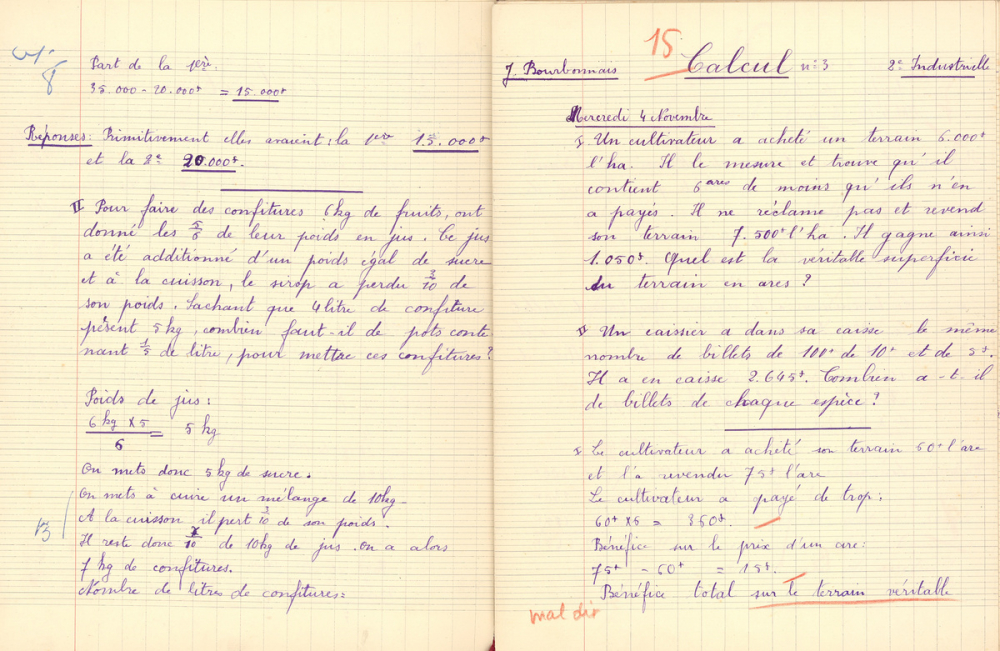 8
Part de la 1ère.
35.000 - 20.000f = 15.000f
Réponses: Primitivement elles avaient: la 1ère 15.000f
et la 2e 20.000f.
II Pour faire des confitures 6kg de fruits, ont
donné les 5/6 de leur poids en jus. Ce jus
a été additionné d'un poids égal de sucre
et à la cuisson, le sirop a perdu 3/10 de
son poids. Sachant que 4 litre de confiture
pèsent 5 kg, combien faut-il de pots conte
nant 1/5 de litre, pour mettre ces confitures?
Poids de jus:
6 kg x 5 / 6 = 5 kg
On mets donc 5 kg de sucre.
On mets à cuire un mélange de 10kg-
A la cuisson il pert 3/10 de son poids.
13
Il reste donc 7/10 de 10kg de jus. On a alors
7 kg de confitures.
Nombre de litres de confitures:
15
J. Bourbonnais Calcul n: 3 2e Industruelle
Mercredi 4 Novembre
I Un cultivateur a acheté un terrain 6.000f
l'ha. Il le mesure et trouve qu'il
contient 6 ares de moins qu'ils n'en
a payés. Il ne réclame pas et revend
son terrain 7.500f l'ha. Il gagne ainsi
1.050f. Quel est la véritable superficie
du terrain en ares?
II Un caissier a dans sa caisse le même
nombre de billets de 100f de 10f et de 5f.
Il a en caisse 2.645f. Combien a-t-il
de billets de chaque espèce?
I Le cultivateur a acheté son terrain 60f l'are
et l'a revender 75f l'are
Le cultivateur a payé de trop:
60f x5 = 350f.
Bénéfice sur le prix d'un are:
75f - 60f = 15f.
Bénéfice total sur le terrain véritable
mal dit